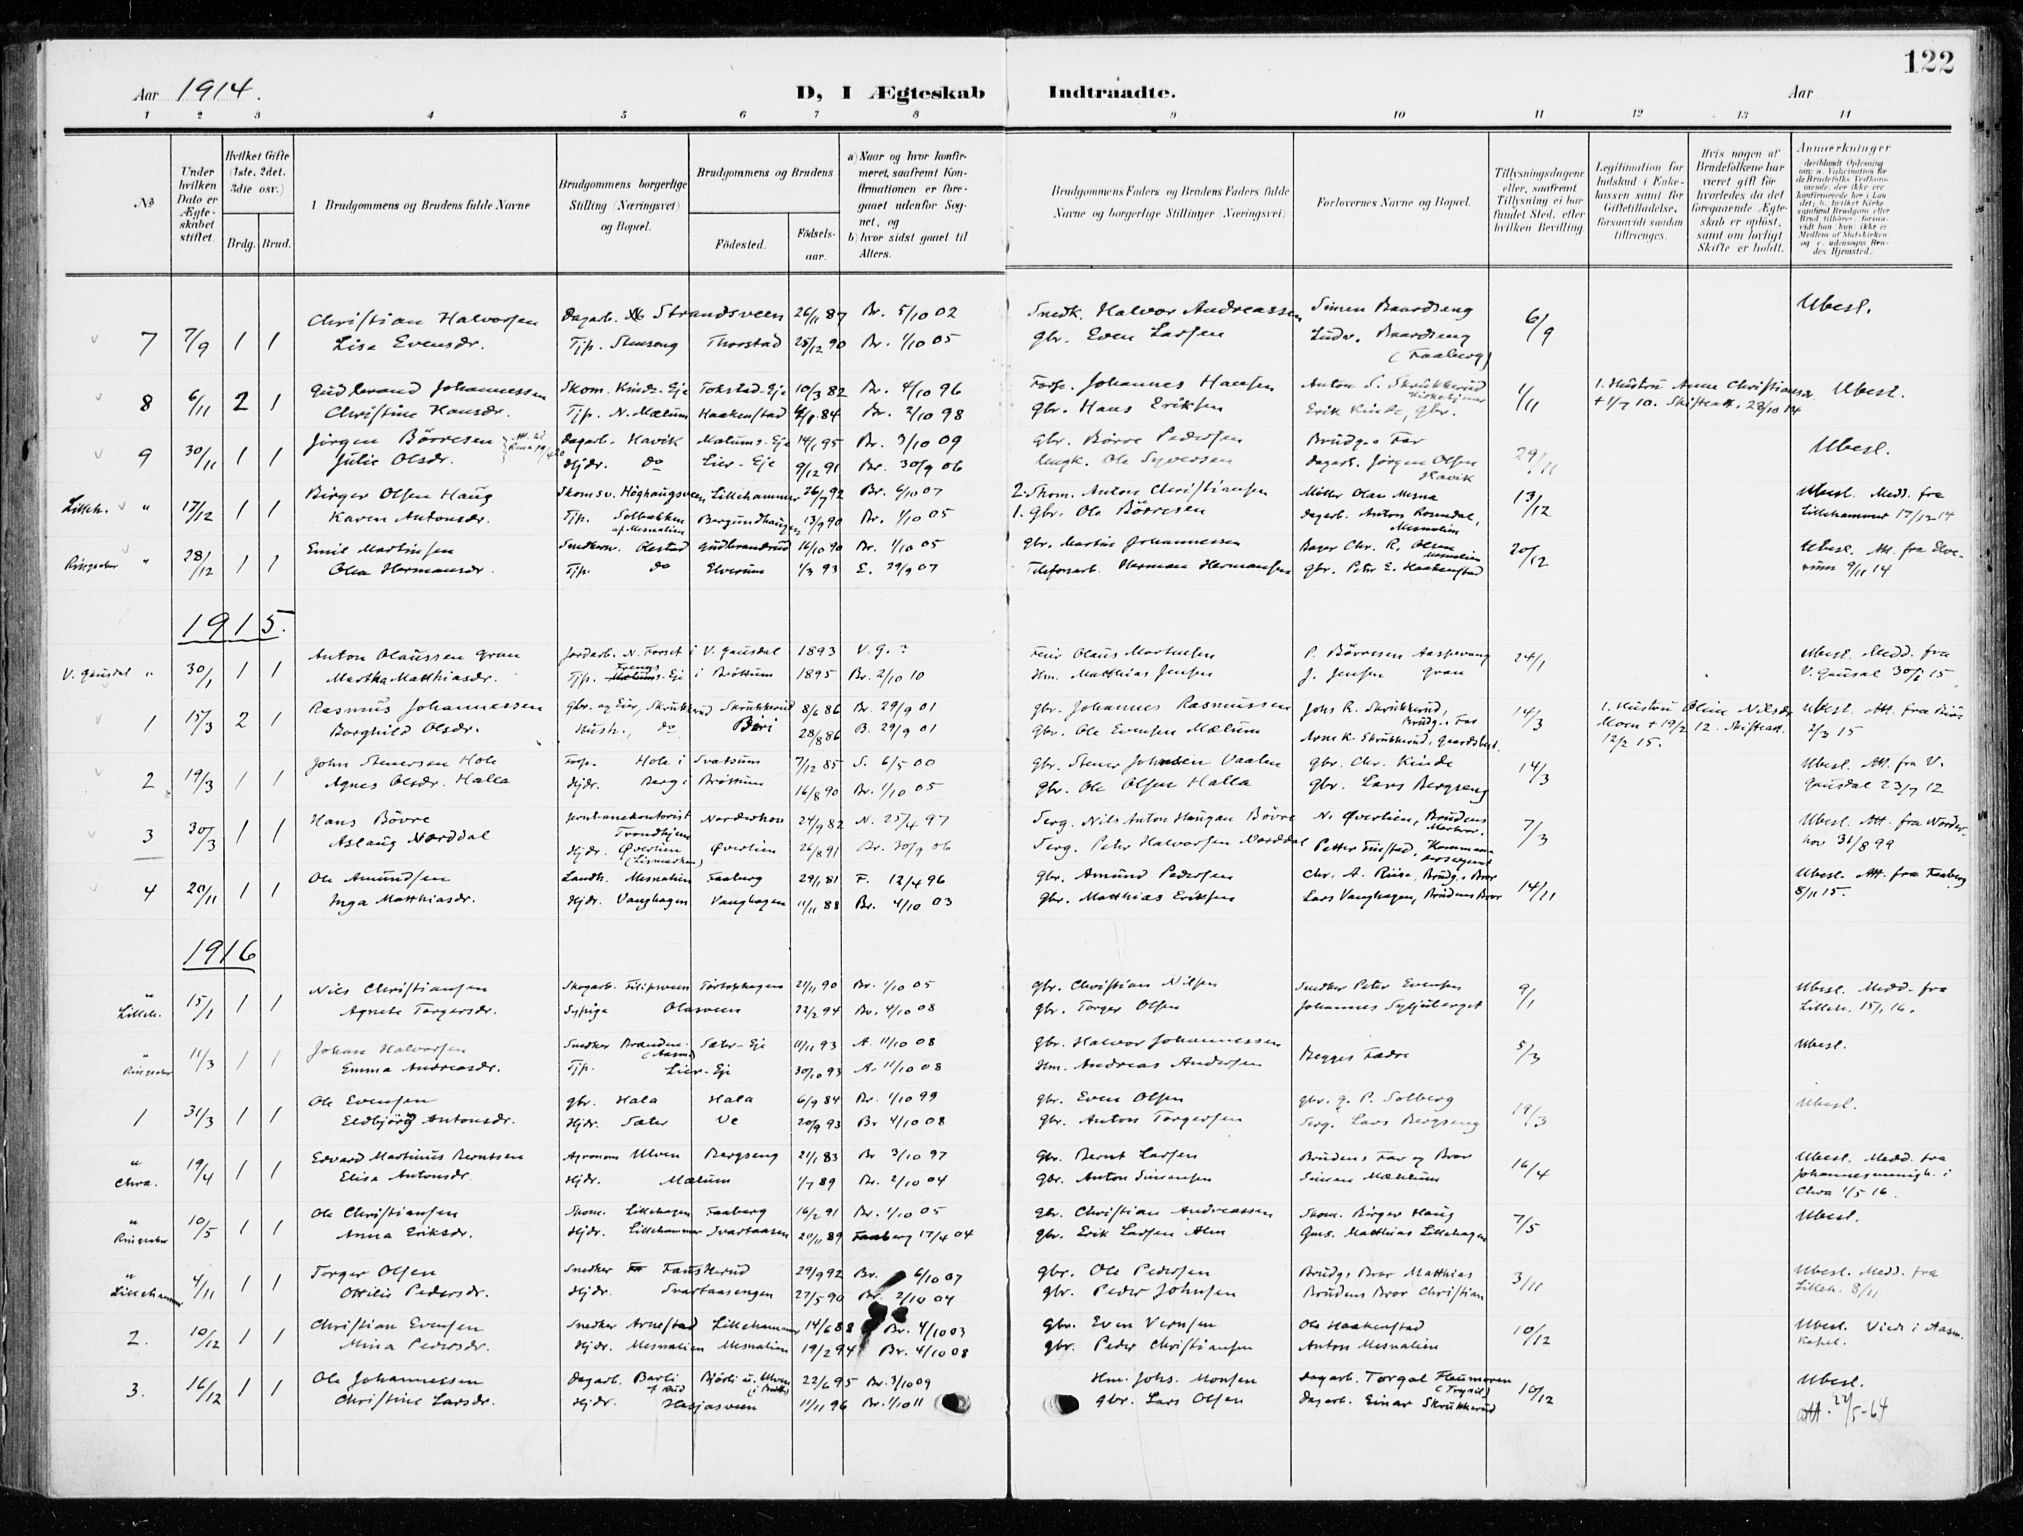 122
Aar 1914. D, I Ægteskab Indtraadte. Aar
1 2 3 4 5 6 7 8 9 10 11 12 13 14
No
Under hvilken Dato er Ægteskabet stiftet.
Hvilket Gifte (1ste, 2det, 3die osv.)
Brdg. Brud.
1 Brudgommens og Brudens fulde Navne
Brudgommens borgerlige Stilling (Næringsvei) og Bopæl.
Brudgommens og Brudens
Fødested. Fødselsaar.
a) Naar og hvor konfirmeret, saafremt Konfirmationen er foregaaet udenfor Sognet, og
b) hvor sidst gaaet til Alters.
Brudgommens Faders og Brudens Faders fulde Navne og borgerlige Stillinger (Næringsvei)
Forlovernes Navne og Bopæl.
Tillysningsdagene eller, saafremt Tillysning ei har fundet Sted, efter hvilken Bevilling
Legitimation for Indskud i Enkekassen samt for Giftetilladelse, forsaavidt saadan tiltrænges.
Hvis nogen af Brudefolkene har været gift før hvorledes da det foregaaende Ægteskab er opløst, samt om lovligt Skifte er holdt.
Anmerkninger
7 7/9 1 1 Christian Halvorsen Dagarb. Strandsveen 26/11 87 Br. 5/10 02 Snedk. Halvor Andreassen Simen Baardseng 6/9 Ubesl.
Lise Evensdr. Tjp. Stenseng Thorstad 25/12 90 Br. 1/10 05 Gbr. Even Larsen Ludv. Baardseng (Faaberg)
8 6/11 2 1 Gudbrand Johannessen Skom. Kinde-Eje Tokstad-Eje 10/3 82 Br. 4/10 96 Johannes Hansen Anton S. Skrukkerud 1/11 1. Hustru Anne Christiansdr Ubesl.
Christine Hansdr. Tjp. N. Mælum Haakenstad 84 Br. 2/10 98 Gbr. Hans Eriksen Erik Kinde, Gbr. + 1/7 10. Skifteatt. 28/10 14
9 30/11 1 1 Jörgen Börresen Dagarb. Havik Mælums-Eje 14/1 95 Br. 3/10 09 Gbr. Börre Pedersen Brudg.s Far 29/11 Ubesl.
Julie Olsdr. Hjdr. do Lier-Eje 9/12 91 Br. 30/9 06 Ungk. Ole Syversen Dagarb. Jörgen Olsen Havik
Lilleh. " 17/12 1 1 Birger Olsen Haug Skomsv. Höghaugsveen Lillehammer 26/7 92 Br. 6/10 07 2. Skom. Anton Christiansen Möller Olav Mesna 13/12 Ubesl. Medd. fra
Karen Antonsdr. Tjp. Solbakken af Mesnalien Bergundhaugen 13/9 90 Br. 1/10 05 1. Gbr. Ole Börresen Dagarb. Anton Rosendal, Mesnalien Lillehammer 17/12 14
Ringsaker " 28/12 1 1 Emil Martinsen Snedkersv. Olestad Gudbrandrud 16/10 90 Br. 1/10 05 Gbr. Martin Johannessen Bager Chr. R. Olsen Mesnalien 20/12 Ubesl. Att. fra Elve-
Olea Hermansdr. Tjp. do Elverum 1/3 93 E. 29/9 07 Telefonarb. Herman Hermansen Gbr. Peter E. Haakenstad rum 9/11 14
1915.
V. Gausdal " 30/1 1 1 Anton Olaussen Gran Jordarb. N. Forset i V. Gausdal 1893 V. G. ? Olaus Mortensen P. Börresen Aaspevang 24/1 Ubesl. Medd. fra
Martha Matthiasdr. Tjp. Mælums-Eje i Bröttum 1895 Br. 2/10 10 Hm. Matthias Jensen J. Jensen Gran V. Gausdal 15
1 15/3 2 1 Rasmus Johannessen Gbr. og Eier, Skrukkerud Skrukkerud 8/6 86 Br. 29/9 01 Gbr. Johannes Rasmussen Johs R. Skrukkerud, Brudg.s Far 14/3 1. Hustru Oline Nilsdr. Ubesl. Att. fra Biri
Borghild Olsdr. Hush., do Biri 28/8 86 B. 29/9 01 Gbr. Ole Evensen Mælum Arne K. Skrukkerud, Gaardsbest. Moen + 19/2 12. Skifteatt. 12/2 15. 2/3 15
2 19/3 1 1 John Stenersen Hole Forp. Hole i Svatsum 7/12 85 S. 6/5 00 Gbr. Stener Johnsen Vaalen Gbr. Chr. Kinde 14/3 Ubesl. Att. fra V.
Agnes Olsdr. Halla Hjdr. Berg i Bröttum 16/8 90 Br. 1/10 05 Gbr. Ole Olsen Halla Gbr. Lars Bergseng Gausdal 23/7 12
3 30/3 1 1 Hans Bövre Jernbanekontorist Trondhjem Norderhov 24/9 82 N. 25/4 97 Serg. Nils Anton Haugan Bövre N. Øverlien, Brudens Morbror. 7/3 Ubesl. Att. fra Norder-
Aslaug Norddal Hjdr. Øverlien (Lismarken) Øverlien 26/8 91 Br. 30/9 06 Serg. Peter Halvorsen Norddal Petter Finstad, hov 31/8 99
4 20/11 1 1 Ole Amundsen Landh. Mesnalien Faaberg 29/1 81 F. 12/4 96 Gbr. Amund Pedersen Chr. A. Riise, Brudg.s Bror 14/11 Ubesl. Att. fra Faaberg
Inga Matthiasdr. Hjdr. Vanghagen Vanghagen 11/11 88 Br. 4/10 03 Gbr. Matthias Eriksen Lars Vanghagen, Brudens Bror 8/11 15.
1916
" Lilleh. 15/1 1 1 Nils Christiansen Skogarb. Filipsveen Fortophagen 21/11 90 Br. 1/10 05 Gbr. Christian Nilsen Snedker Peter Evensen 9/1 Ubesl. Medd. fra
Agnete Torgersdr. Sypige Olasveen 22/2 94 Br. 4/10 08 Gbr. Torger Olsen Johannes Sygjuberget Lilleh. 15/1 16.
" Ringsaker 11/3 1 1 Johan Halvorsen Snedker Branden (Aasmd Sæter-Eje 11/11 93 A. 11/10 08 Gbr. Halvor Johannessen Begges Fædre 5/3 Ubesl.
Emma Andreasdr. Tjp. Lier-Eje 30/10 93 A. 11/10 08 Hm. Andreas Andersen
1 31/3 1 1 Ole Evensen Gbr. Hala Hala 6/9 84 Br. 1/10 99 Gbr. Even Olsen Gbr. G. P. Solberg 19/3 Ubesl.
Eldbjörg Antonsdr. Hjdr. Sæter Ve 20/9 93 Br 4/10 08 Gbr. Anton Torgersen Serg. Lars Bergseng
" Chra. 19/4 1 1 Edvard Martinus Berntsen Agronom Ulven Bergseng 21/1 83 Br 3/10 97 Gbr. Bernt Larsen Brudens Far og Bror 16/4 Ubesl. Medd. fra
Elise Antonsdr. Hjdr. Mælum 1/7 89 Br. 2/10 04 Gbr. Anton Simensen Simen Mæhlum Johannesmenigh. i Chra 1/5 16.
" Ringsaker 10/5 1 1 Ole Christiansen Skom. Lillehagen Faaberg 16/2 91 Br. 1/10 05 Gbr. Christian Andreassen Skom. Birger Haug 7/5 Ubesl.
Anna Eriksdr. Hjdr. Lillehammer Svartaasen 20/11 89 Faaberg 17/4 04 Gbr. Erik Larsen Alm Gms. Matthias Lillehagen
" Lillehammer 4/11 1 1 Torger Olsen Snedker Fauskerud 29/9 92 Br. 6/10 07 Gbr. Ole Pedersen Brudg.s Bror Matthias 3/11 Ubesl. Medd. fra
Ottilie Pedersdr. Hjdr. Svartaasengen 27/5 90 Br. 2/10 04 Gbr. Peder Johnsen Brudens Bror Christian Lilleh. 8/11
2. 10/12 1 1 Christian Evensen Snedker Arnestad Lillehammer 14/6 88 Br. 4/10 03 Gbr. Even Evensen Ole Haakenstad 10/12 Ubesl. Viede i Aasm. Kapel.
Mina Pedersdr. Hjdr. Mesnalien Mesnalien 19/2 94 Br. 4/10 08 Gbr. Peder Christiansen Anton Mesnalien
3. 16/12 1 1 Ole Johannessen Dagarb. Barli Björli u. Ulven 22/6 95 Br. 3/10 09 Hm. Johs. Monsen Dagarb. Torgal Flaumoren (Trysil) 10/12 Ubesl.
Christine Larsdr. Hjdr. Hesjasveen 11/11 96 Br. 1/10 11 Gbr. Lars Olsen Dagarb. Einar Skrukkerud Att. 22/5-64